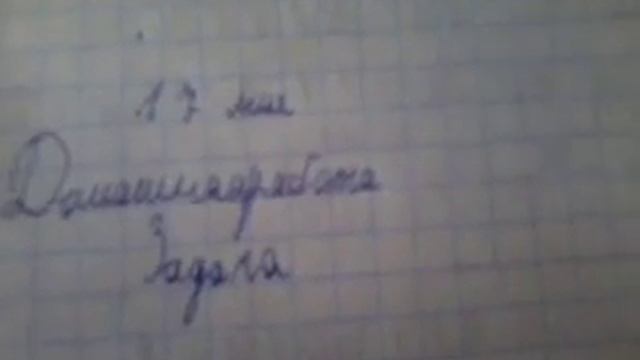 17 мая
Домашняя работа
Задача